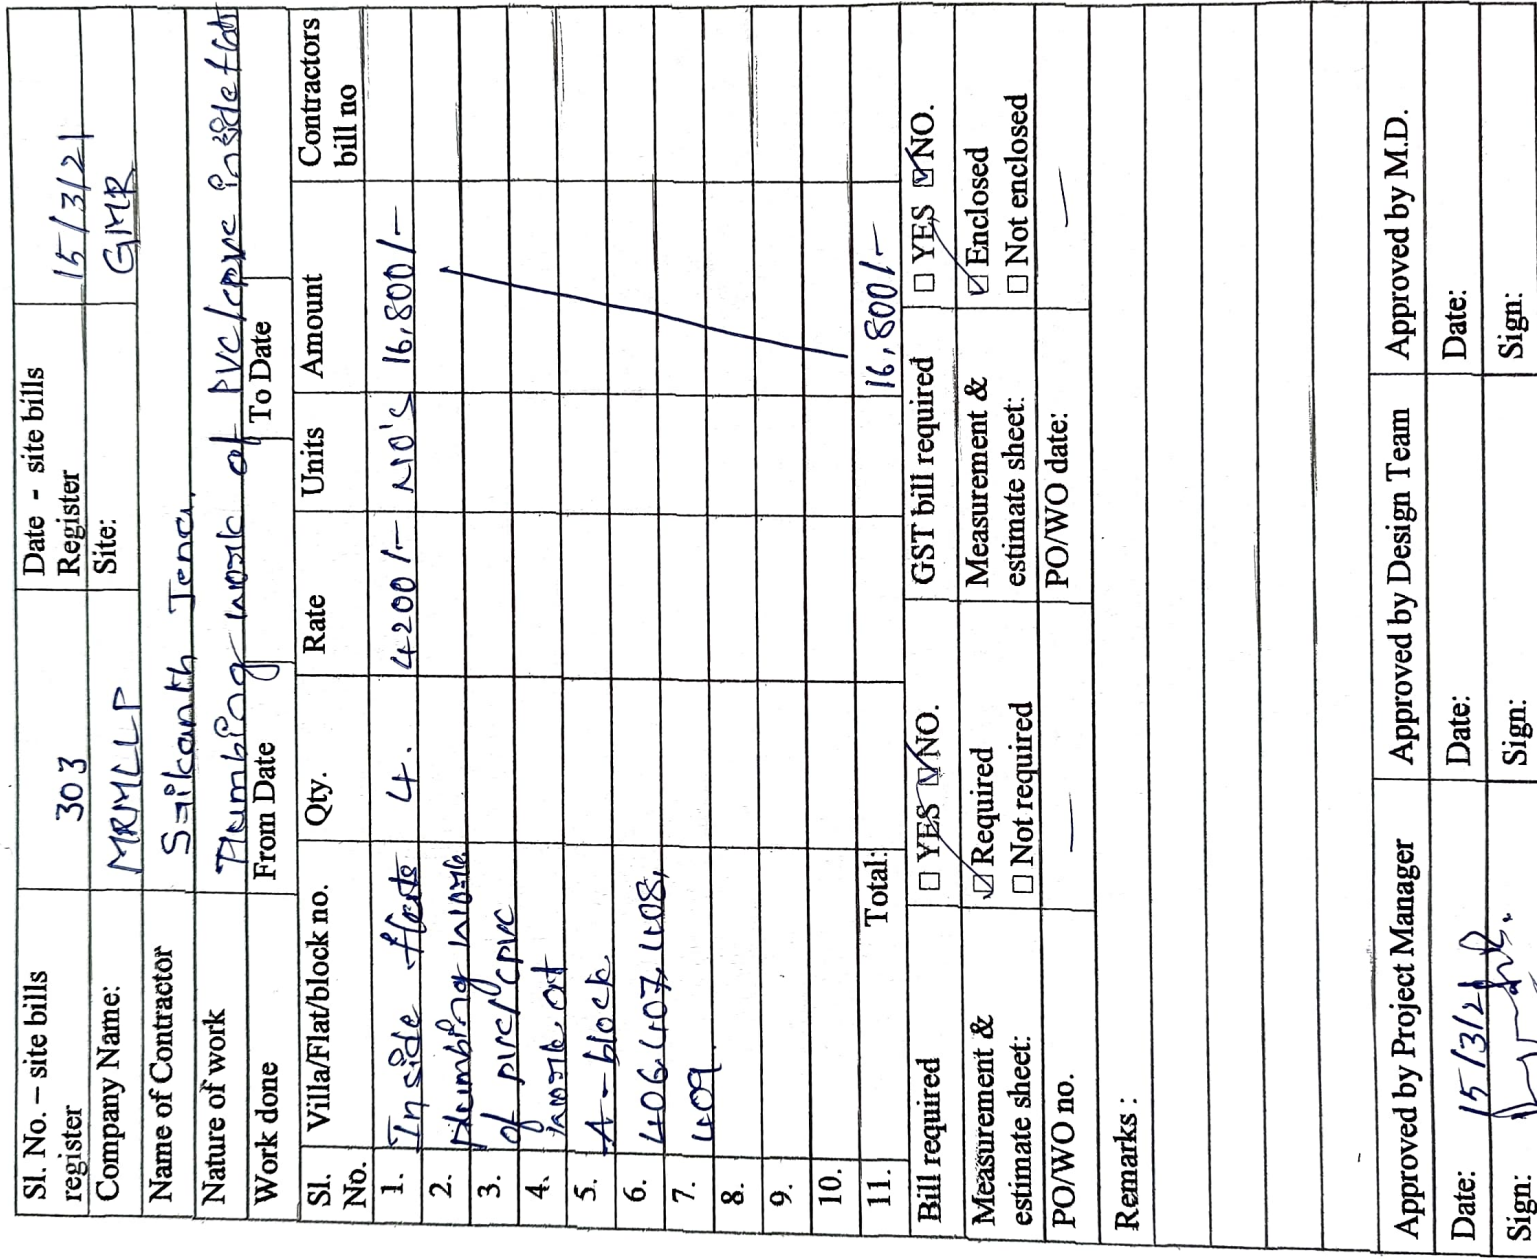 Sl. No. – site bills register 303 Date - site bills Register 15/3/21
Company Name: MRMLLP Site: GMR
Name of Contractor Saikanth Jena.
Nature of work Plumbing work of PVC/cpvc inside flat
Work done From Date To Date
Sl. No. Villa/Flat/block no. Qty. Rate Units Amount Contractors bill no
1. Inside flats 4. 4200/- NO's 16,800/-
2. plumbing work
3. of pvc/cpvc
4. work at
5. A-block
6. 406,407,408,
7. 409.
8.
9.
10.
11. Total: 16,800/-
Bill required □ YES ☑ NO. GST bill required □ YES ☑ NO.
Measurement & estimate sheet: ☑ Required □ Not required Measurement & estimate sheet: ☑ Enclosed □ Not enclosed
PO/WO no. — PO/WO date: —
Remarks :
Approved by Project Manager Approved by Design Team Approved by M.D.
Date: 15/3/21 Date: Date:
Sign: Sign: Sign: